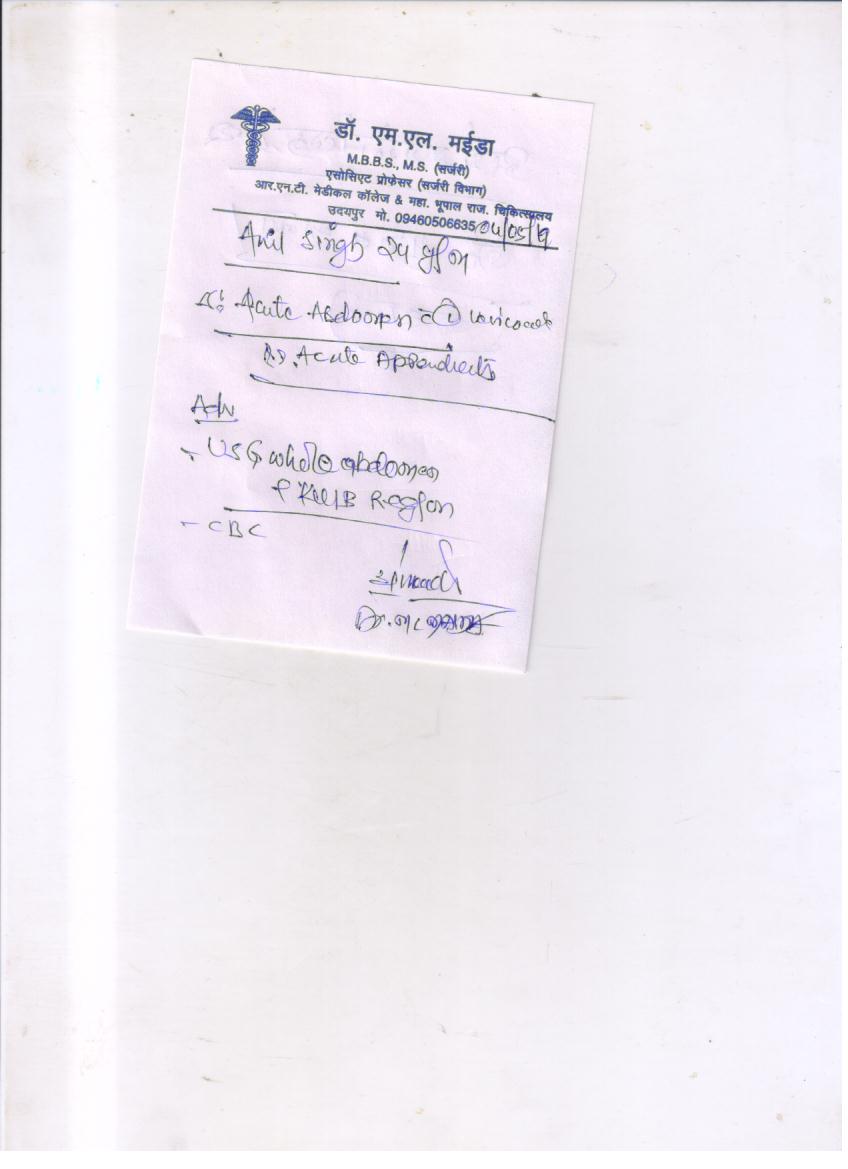 डॉ. एम.एल. मईडा
M.B.B.S., M.S. (सर्जरी)
एसोसिएट प्रोफेसर (सर्जरी विभाग)
आर.एन.टी. मेडीकल कॉलेज & महा. भूपाल राज. चिकित्सालय
उदयपुर मो. 09460506635
Anil Singh
Acute Abdomen
Acute Appendicitis
Adv
- USG whole abdomen
KUB Region
- CBC
Dr.